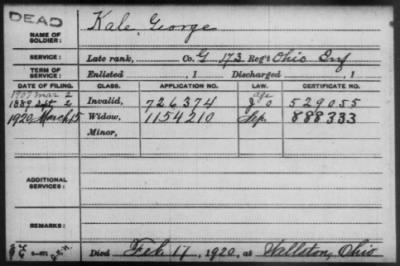 DEAD
NAME OF SOLDIER: Kale, George
SERVICE: Late rank, Co. G 173 Reg't Ohio Inf
TERM OF SERVICE: Enlisted , 1 Discharged , 1
DATE OF FILING. CLASS. APPLICATION NO. LAW. CERTIFICATE NO.
1907 Mar 2
1889 2 Invalid, 726374 age 529055
1920 March 15 Widow, 1154210 888333
Minor,
ADDITIONAL SERVICES:
REMARKS:
Died Feb. 17, 1920, at Wellston, Ohio